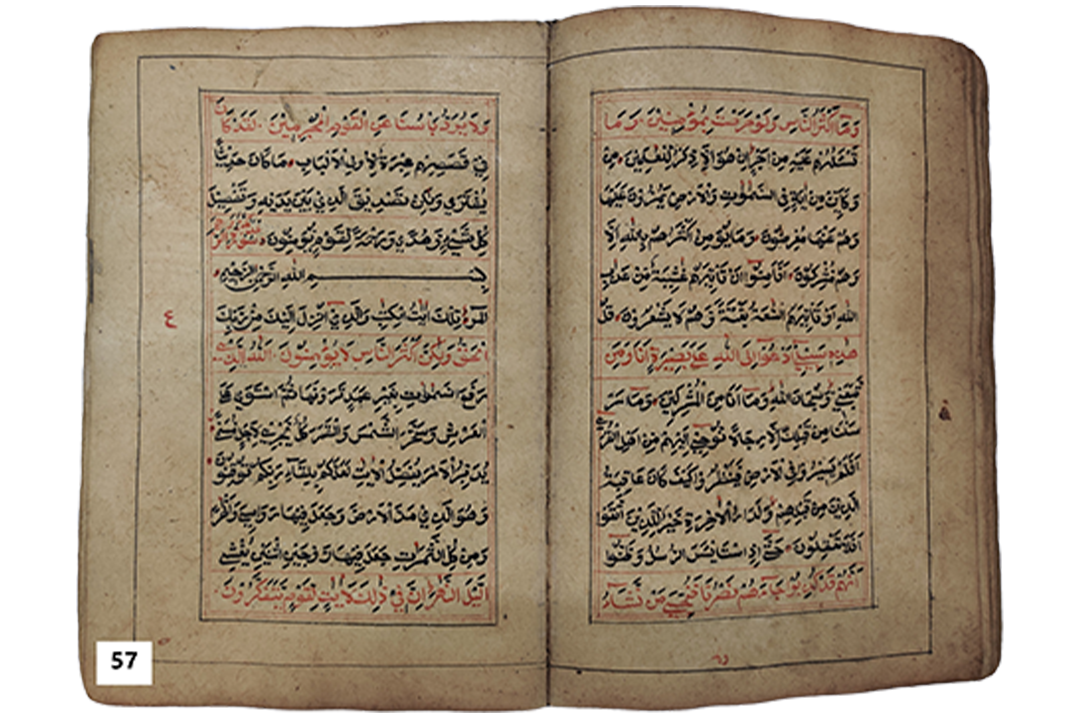 وَمَا أَكْثَرُ النَّاسِ وَلَوْ حَرَصْتَ بِمُؤْمِنِينَ وَمَا
تَسْئَلُهُمْ عَلَيْهِ مِنْ اَجْرٍ اِنْ هُوَ اِلَّا ذِكْرٌ لِلْعٰلَمِينَ
وَكَايِّنْ مِنْ اٰيَةٍ فِي السَّمٰوٰتِ وَالْاَرْضِ يَمُرُّونَ عَلَيْهَا
وَهُمْ عَنْهَا مُعْرِضُونَ وَمَا يُؤْمِنُ اَكْثَرُهُمْ بِاللهِ اِلَّا
وَهُمْ مُشْرِكُونَ اَفَاَمِنُوا اَنْ تَاْتِيَهُمْ غٰشِيَةٌ مِنْ عَذَابِ
اللهِ اَوْ تَاْتِيَهُمُ السَّاعَةُ بَغْتَةً وَهُمْ لَا يَشْعُرُونَ قُلْ
هٰذِهِ سَبِيلِي اَدْعُوا اِلَى اللهِ عَلٰى بَصِيرَةٍ اَنَا وَمَنِ
اتَّبَعَنِي وَسُبْحَانَ اللهِ وَمَا اَنَا مِنَ الْمُشْرِكِينَ وَمَا اَرْ
سَلْنَا مِنْ قَبْلِكَ اِلَّا رِجَالًا نُوحِي اِلَيْهِمْ مِنْ اَهْلِ الْقُرٰى
اَفَلَمْ يَسِيرُوا فِي الْاَرْضِ فَيَنْظُرُوا كَيْفَ كَانَ عَاقِبَةُ
الَّذِينَ مِنْ قَبْلِهِمْ وَلَدَارُ الْاٰخِرَةِ خَيْرٌ لِلَّذِينَ اتَّقَوْا
اَفَلَا تَعْقِلُونَ حَتّٰى اِذَا اسْتَايْئَسَ الرُّسُلُ وَظَنُّوا
اَنَّهُمْ قَدْ كُذِبُوا جَاءَهُمْ نَصْرُنَا فَنُجِّيَ مَنْ نَشَاءُ
وَلَا يُرَدُّ بَاْسُنَا عَنِ الْقَوْمِ الْمُجْرِمِينَ لَقَدْ كَانَ
فِي قَصَصِهِمْ عِبْرَةٌ لِاُولِي الْاَلْبَابِ مَا كَانَ حَدِيثًا
يُفْتَرٰى وَلٰكِنْ تَصْدِيقَ الَّذِي بَيْنَ يَدَيْهِ وَتَفْصِيلَ
كُلِّ شَيْءٍ وَهُدًى وَرَحْمَةً لِقَوْمٍ يُؤْمِنُونَ
بِسْمِ اللهِ الرَّحْمٰنِ الرَّحِيمِ
الٓمٓرٰ تِلْكَ اٰيٰتُ الْكِتٰبِ وَالَّذِي اُنْزِلَ اِلَيْكَ مِنْ رَبِّكَ
الْحَقُّ وَلٰكِنَّ اَكْثَرَ النَّاسِ لَا يُؤْمِنُونَ اَللهُ الَّذِي
رَفَعَ السَّمٰوٰتِ بِغَيْرِ عَمَدٍ تَرَوْنَهَا ثُمَّ اسْتَوٰى عَلَى
الْعَرْشِ وَسَخَّرَ الشَّمْسَ وَالْقَمَرَ كُلٌّ يَجْرِي لِاَجَلٍ مُسَمًّى
يُدَبِّرُ الْاَمْرَ يُفَصِّلُ الْاٰيٰتِ لَعَلَّكُمْ بِلِقَاءِ رَبِّكُمْ تُوقِنُونَ
وَهُوَ الَّذِي مَدَّ الْاَرْضَ وَجَعَلَ فِيهَا رَوَاسِيَ وَاَنْهٰرًا
وَمِنْ كُلِّ الثَّمَرَاتِ جَعَلَ فِيهَا زَوْجَيْنِ اثْنَيْنِ يُغْشِي
الَّيْلَ النَّهَارَ اِنَّ فِي ذٰلِكَ لَاٰيٰتٍ لِقَوْمٍ يَتَفَكَّرُونَ
ع
57